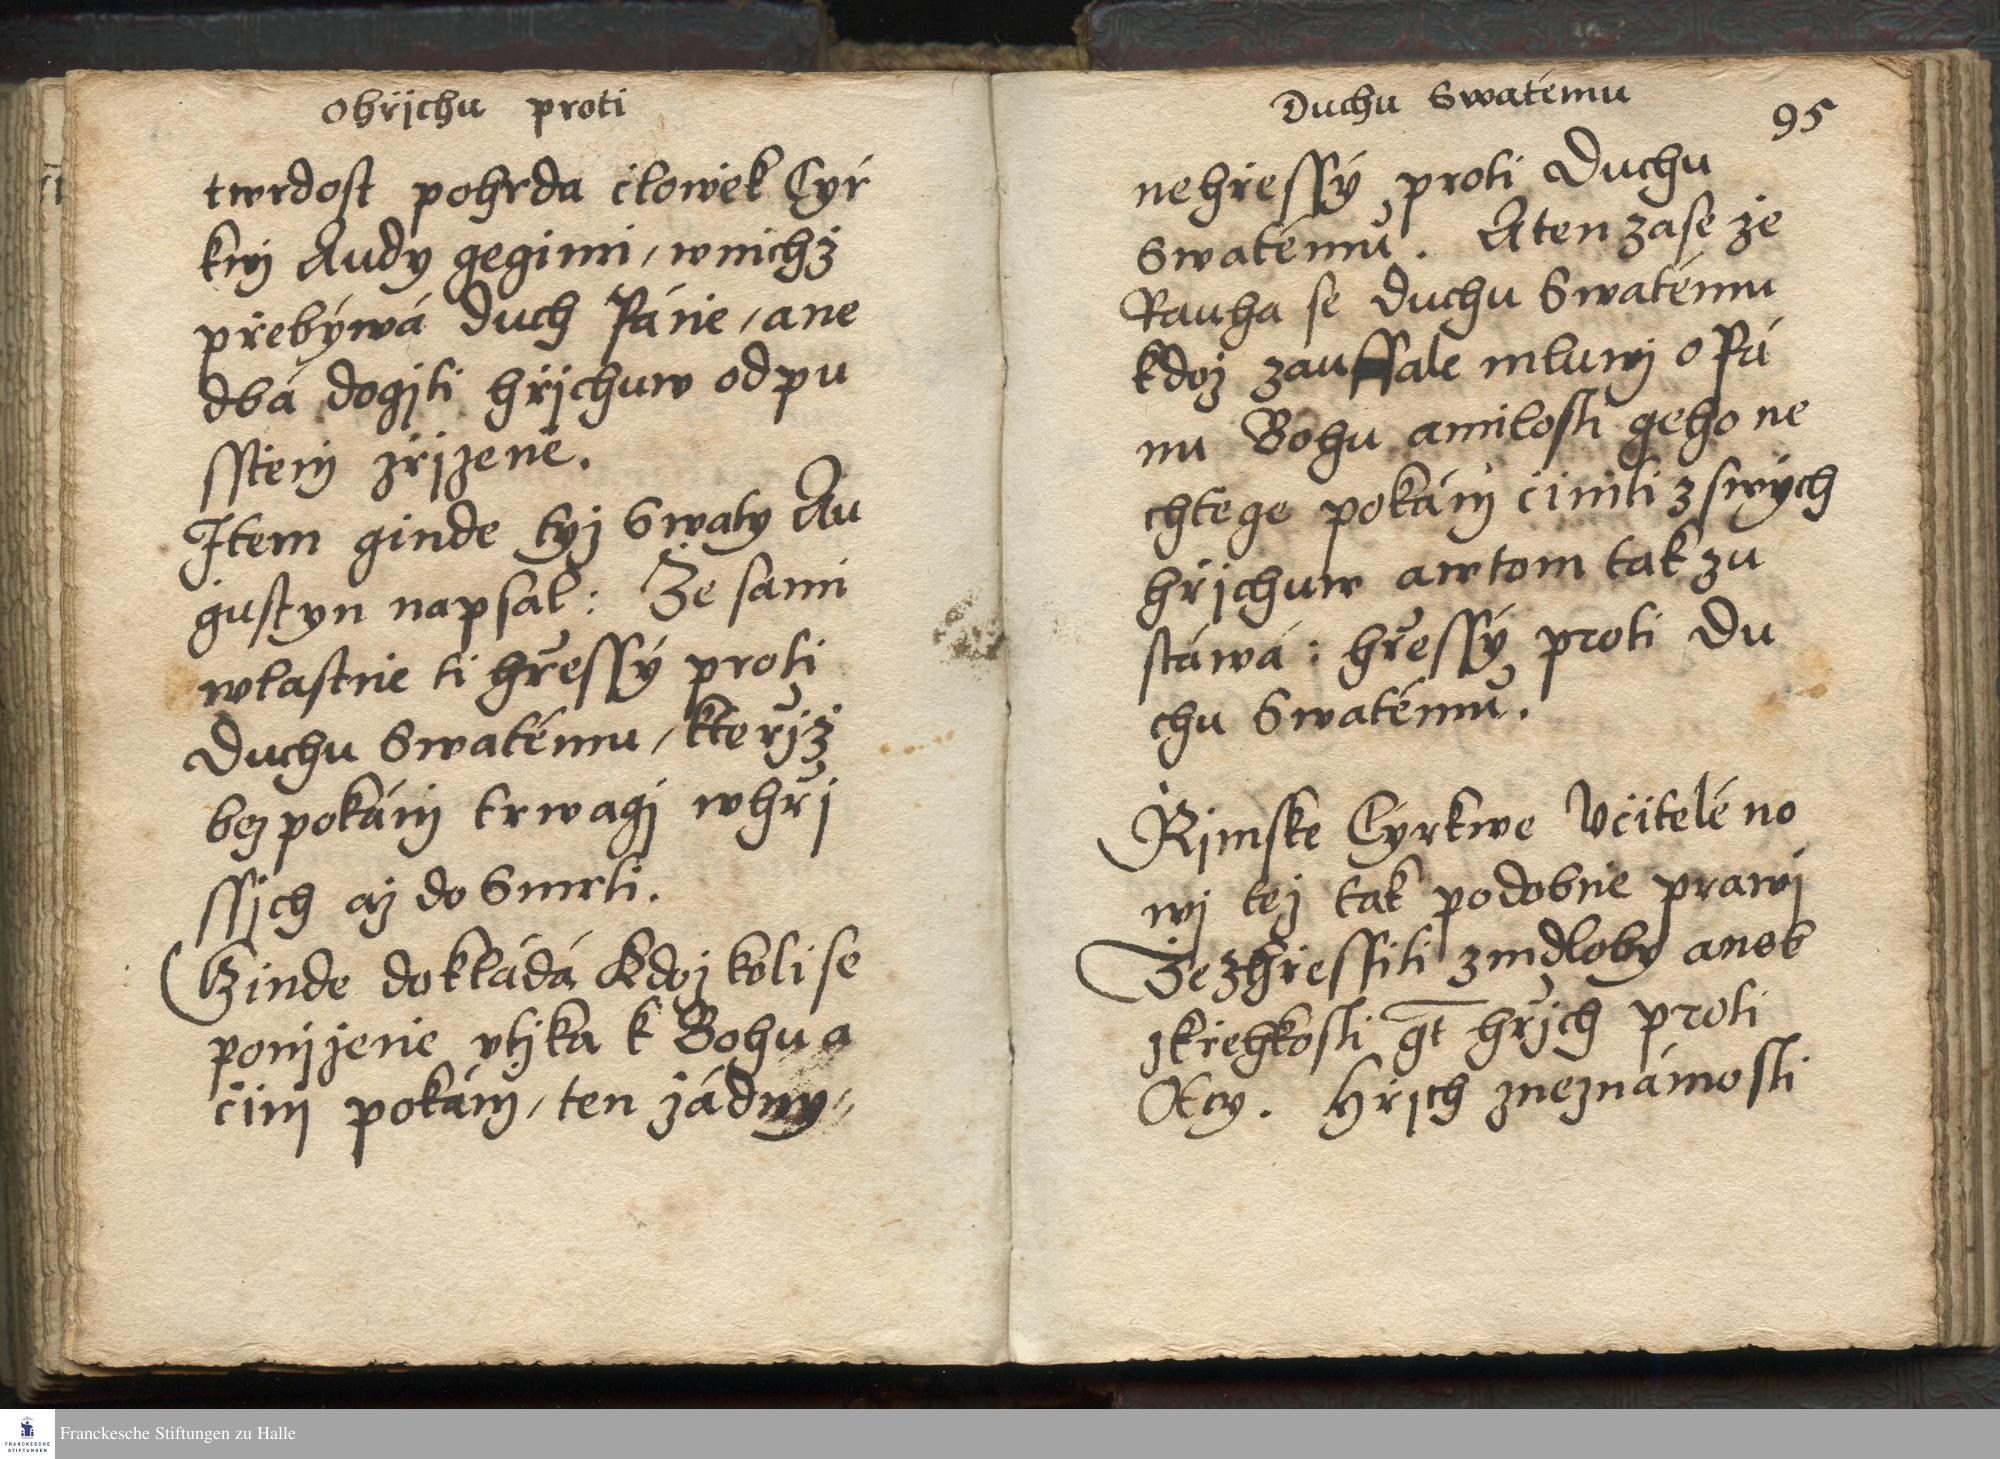 Ohřjchu proti
twrdost pohrda člowěk Cýr
kwj Audy gegimi, wnichž
přebýwá duch Páně, ane
dbá dogjti hřjchuw odpu
sstěnj zřjzené.
Item ginde týž Swatý Au
gustyn napsal: Že sami
wlastně ti hřessý proti
Duchu Swatému, kteřjž
bez pokánj trwagj whřj
ssjch až do Smrti.
Ginde dokládá Kdož koli se
ponjženě vtjka k Bohu a
činj pokánj, ten žádný,
Duchu Swatému
95
nehřessý proti Duchu
Swatému. Aten zase že
Rauha se duchu Swatému
kdož zauffale mluwj o Pá
nu Bohu amilosti geho ne
chtěge pokánj činiti z swých
hřjchuw awtom tak zu
stáwá: hřessý proti Du
chu Swatému.
Řjmske Cýrkwe Včitelé no
wj též tak podobně prawj
Že zhřessiti zmdloby aneb
zkřehkosti gt hřjch proti
Otcy. Hřjch zneznámosti
Franckesche Stiftungen zu Halle
FRANCKESCHE
STIFTUNGEN